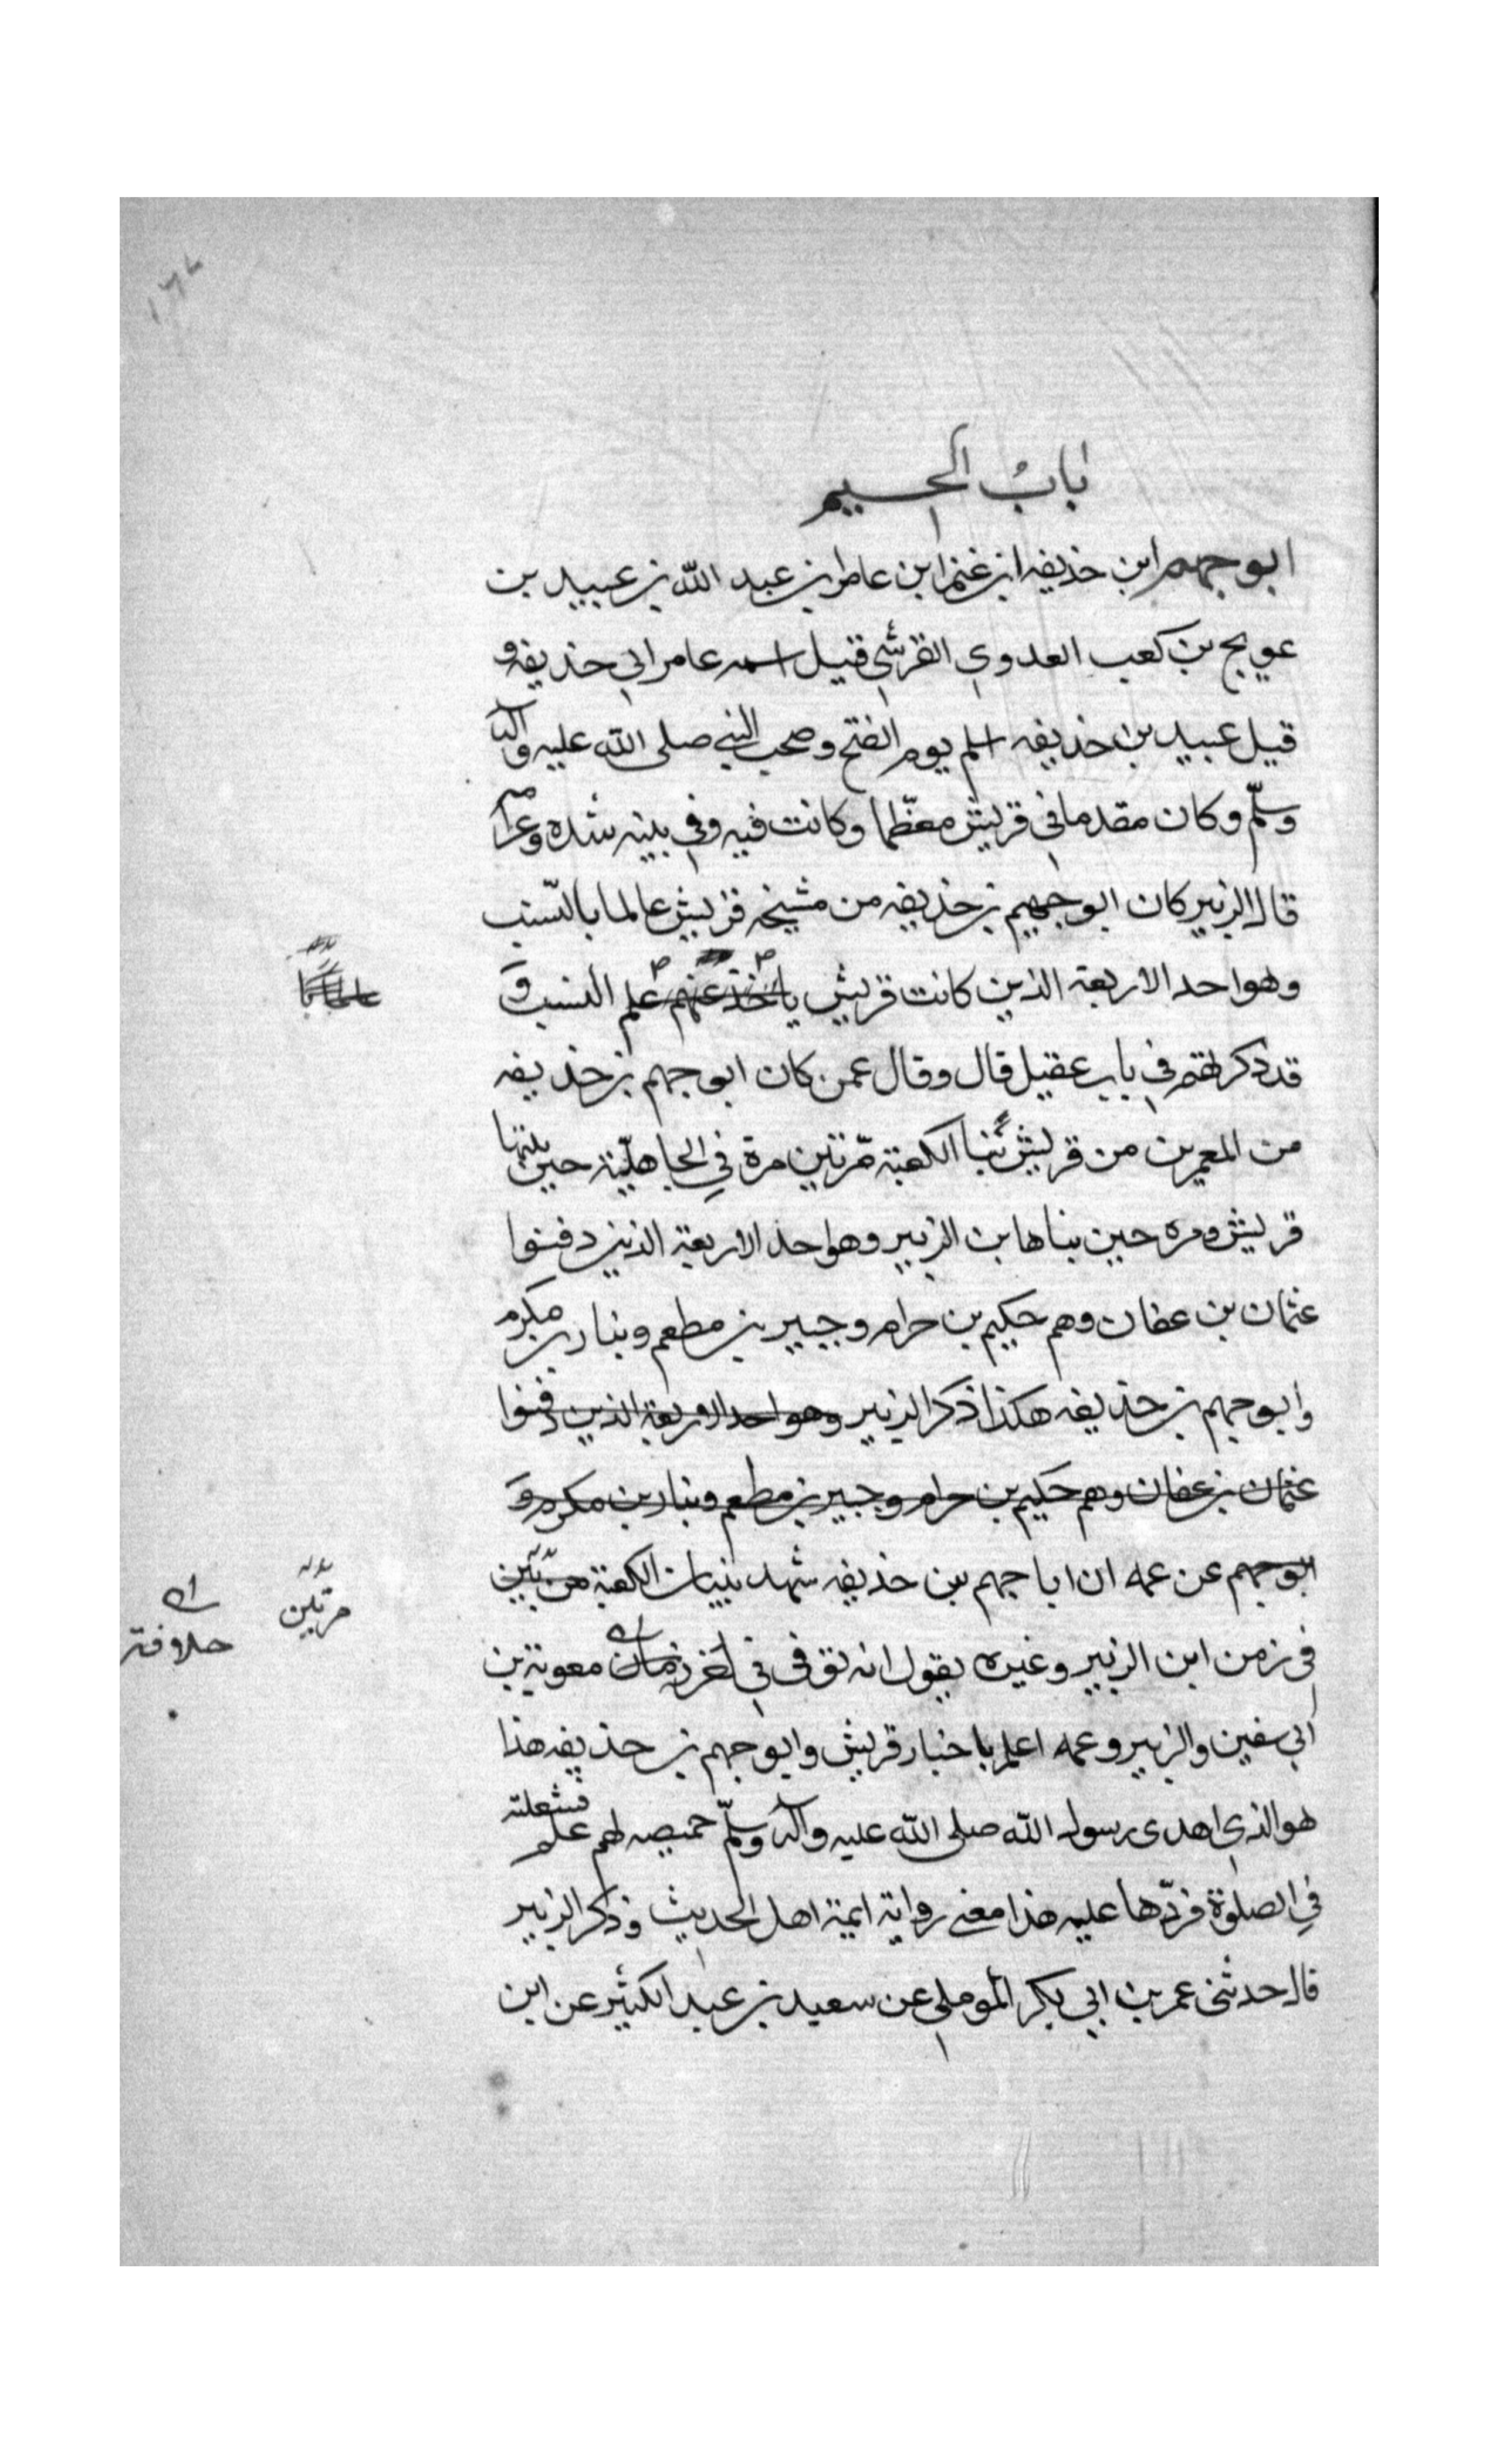 باب الجيم
ابو جهم ابن حذيفه ابن غنم ابن عامر بن عبد الله بن عبيد بن
عويج بن كعب العدوى القرشى قيل اسمه عامر ابى حذيفه و
قيل عبيد بن حذيفه اسلم يوم الفتح وصحب النبي صلى الله عليه وآله
وسلّم وكان مقدما فى قريش معظّما وكانت فيه وفى بنيه شده
قال الزبير كان ابو جهيم بن حذيفه من مشيخه قريش عالما بالنّسب
وهو احد الاربعة الذين كانت قريش يأخذ عنهم علم النسب و
قد ذكرتهم فى باب عقيل قال وقال عمن كان ابو جهم بن حذيفه
من المعمرين من قريش بنا الكعبة مّرتين مرة فى الجاهليّة حين بنتها
قريش ومره حين بناها بن الزبير وهو احد الاربعة الذين دفنوا
عثمان بن عفان وهم حكيم بن حرام وجبير بن مطعم وبنار بن مكرم
وابو جهم بن حذيفه هكذا ذكر الزبير وهو احد الاربعة الذين دفنوا
عثمان بن عفان وهم حكيم بن حرام وجبير بن مطعم وبنار بن مكرم و
ابو جهم عن عمه ان ابا جهم بن حذيفه شهد بنيان الكعبة مرتين
مرتين
فى زمن ابن الزبير وغيره يقول انه توفى فى اخر زمان معوية بن
خلافة
ابى سفين والزبير وعمه اعلم باخبار قريش وابو جهم بن حذيفه هذا
هو الذى اهدى رسول الله صلى الله عليه وآله وسلّم خميصه لهم علم فشغلته
فى الصلوة فردّها عليه هذا معنى رواية ايمة اهل الحديث وذكر الزبير
قال حدثنى عمر بن ابى بكر الموملى عن سعيد بن عبد الكثير عن ابن